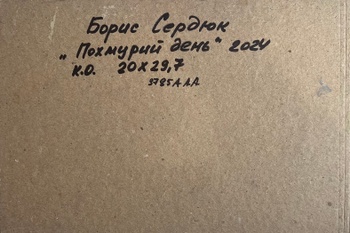 Борис Сердюк
„Похмурий день" 2024
К.О. 20х29,7